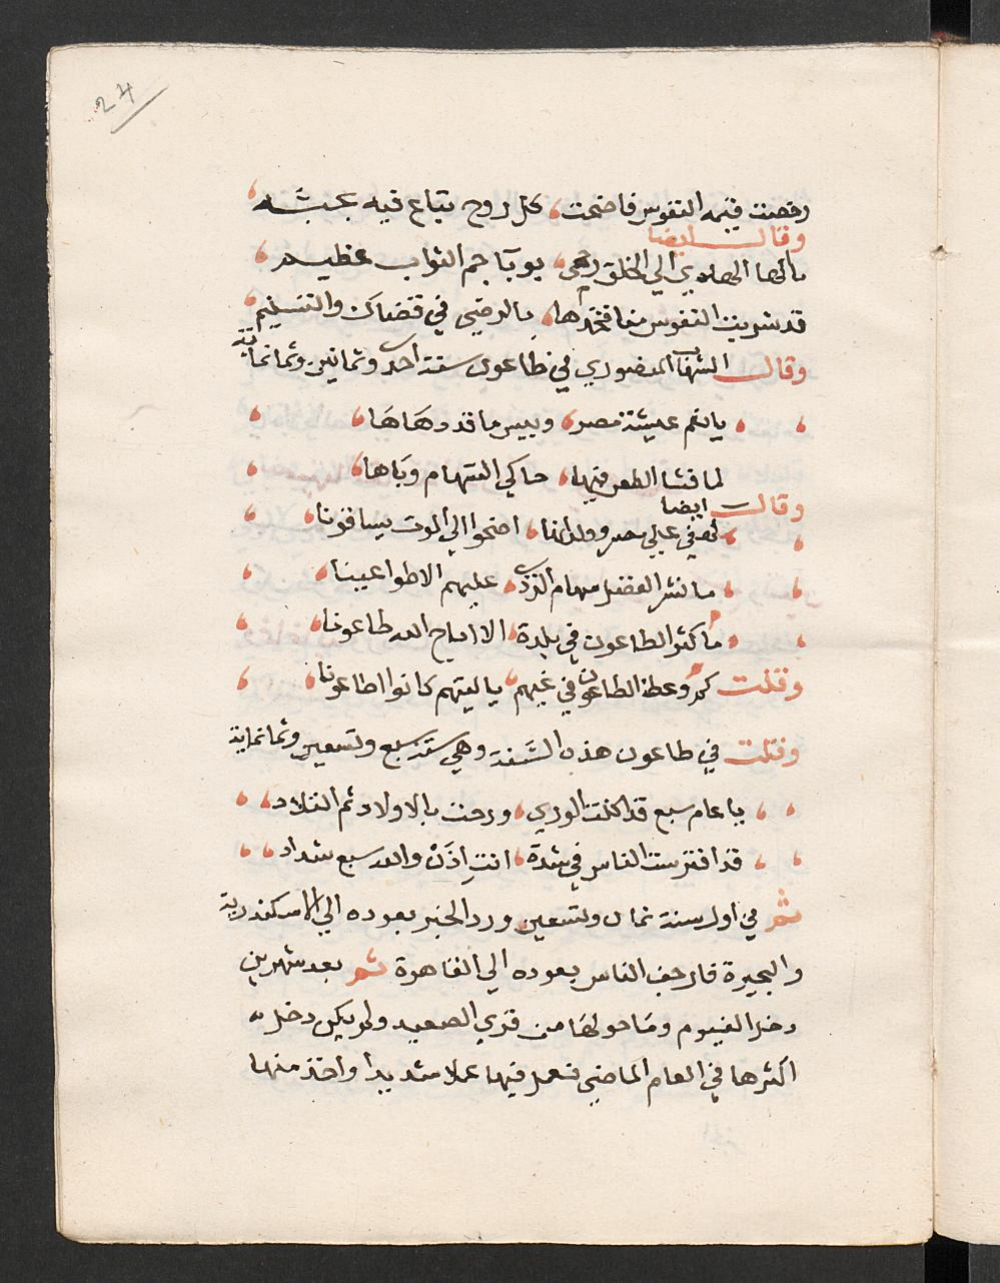 24
رخصت قيمه النفوس فاضحت، كل روح تباع فيه بحبَّه
وقال ايضا
ما لها الهادي الي الخلق رحمي، بوباجم الثواب عظيم
قد شريت النفوس منا فخذها، بالرضي في قضاك والتسليم
وقال الشهاب المنصوري في طاعون سنة احدي وثمانين وثمانمائة
يا نعم عيشة مصر، وبيس ما قد دهَاهَا
لما فشا الطعن فيها، حاكي السهام وبَاها
وقال ايضا
لهفي علي مصر وولدانها، اضحوا الي الموت يساقونا
ما نشر الفضل سهام الردي، عليهم الا طواعينا
ما كثر الطاعون في بلدة، الا اباح الله طاعونا
وقلت كم وعظ الطاعون في غيهم، يا ليتهم كانوا اطاعونا
وقلت في طاعون هذه السَّنة وهي سنة سبع وتسعين وثمانماية
يا عام سبع قد اكلت الوري، ورحت بالاولاد ثم التلاد
قد افترست الناس في شدة، انت اذنْ والله سبع شداد
ثم في اول سنة ثمان وتسعين ورد الخبر بعوده الي الاسكندرية
والبحيرة فارجف الناس بعوده الي القاهرة ثم بعد شهرين
دخل الفيوم ومَا حولهَا من قري الصعيد ولم يكن دخل
اكثرها في العام الماضي فعمل فيها عملا شديدا واخذ منها